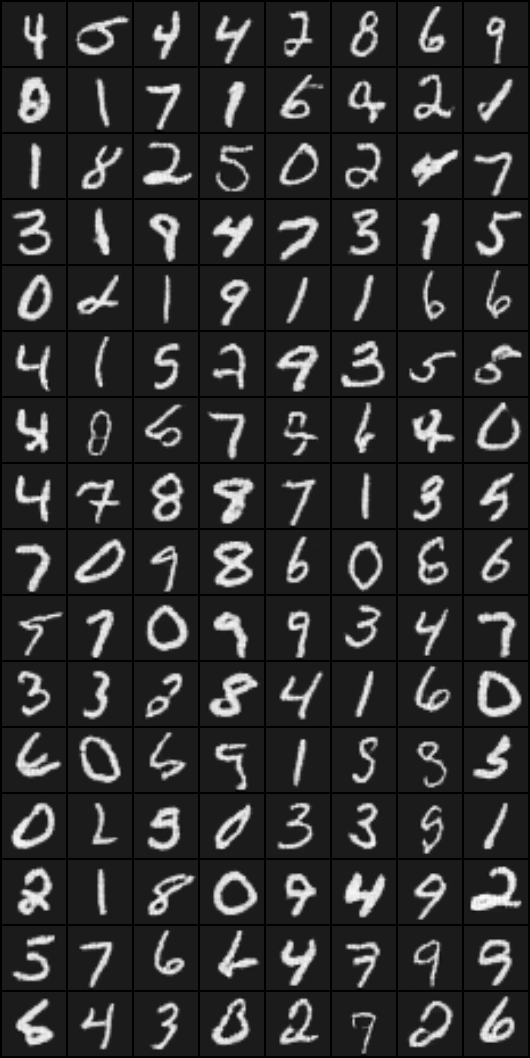 4 5 4 4 2 8 6 9
8 1 7 1 6 9 2 1
1 8 2 5 0 2 4 7
3 1 9 4 7 3 1 5
0 2 1 9 1 1 6 6
4 1 5 2 9 3 5 5
4 8 6 7 5 6 4 0
4 7 8 8 7 1 3 5
7 0 9 8 6 0 6 6
5 7 0 9 9 3 4 7
3 3 2 8 4 1 6 0
6 0 5 9 1 5 8 3
0 2 5 0 3 3 9 1
2 1 8 0 9 4 9 2
5 7 6 6 4 7 9 9
6 4 3 0 2 7 2 6